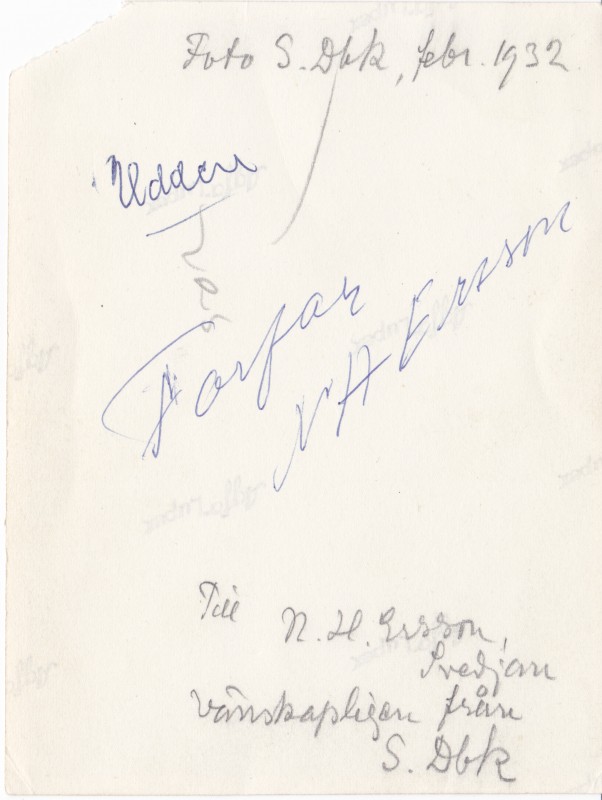 Foto S. Dbk, febr. 1932
Udden
Farfar
N H Ersson
Till N. H. Ersson,
Svedjan
vänskapligen från
S. Dbk